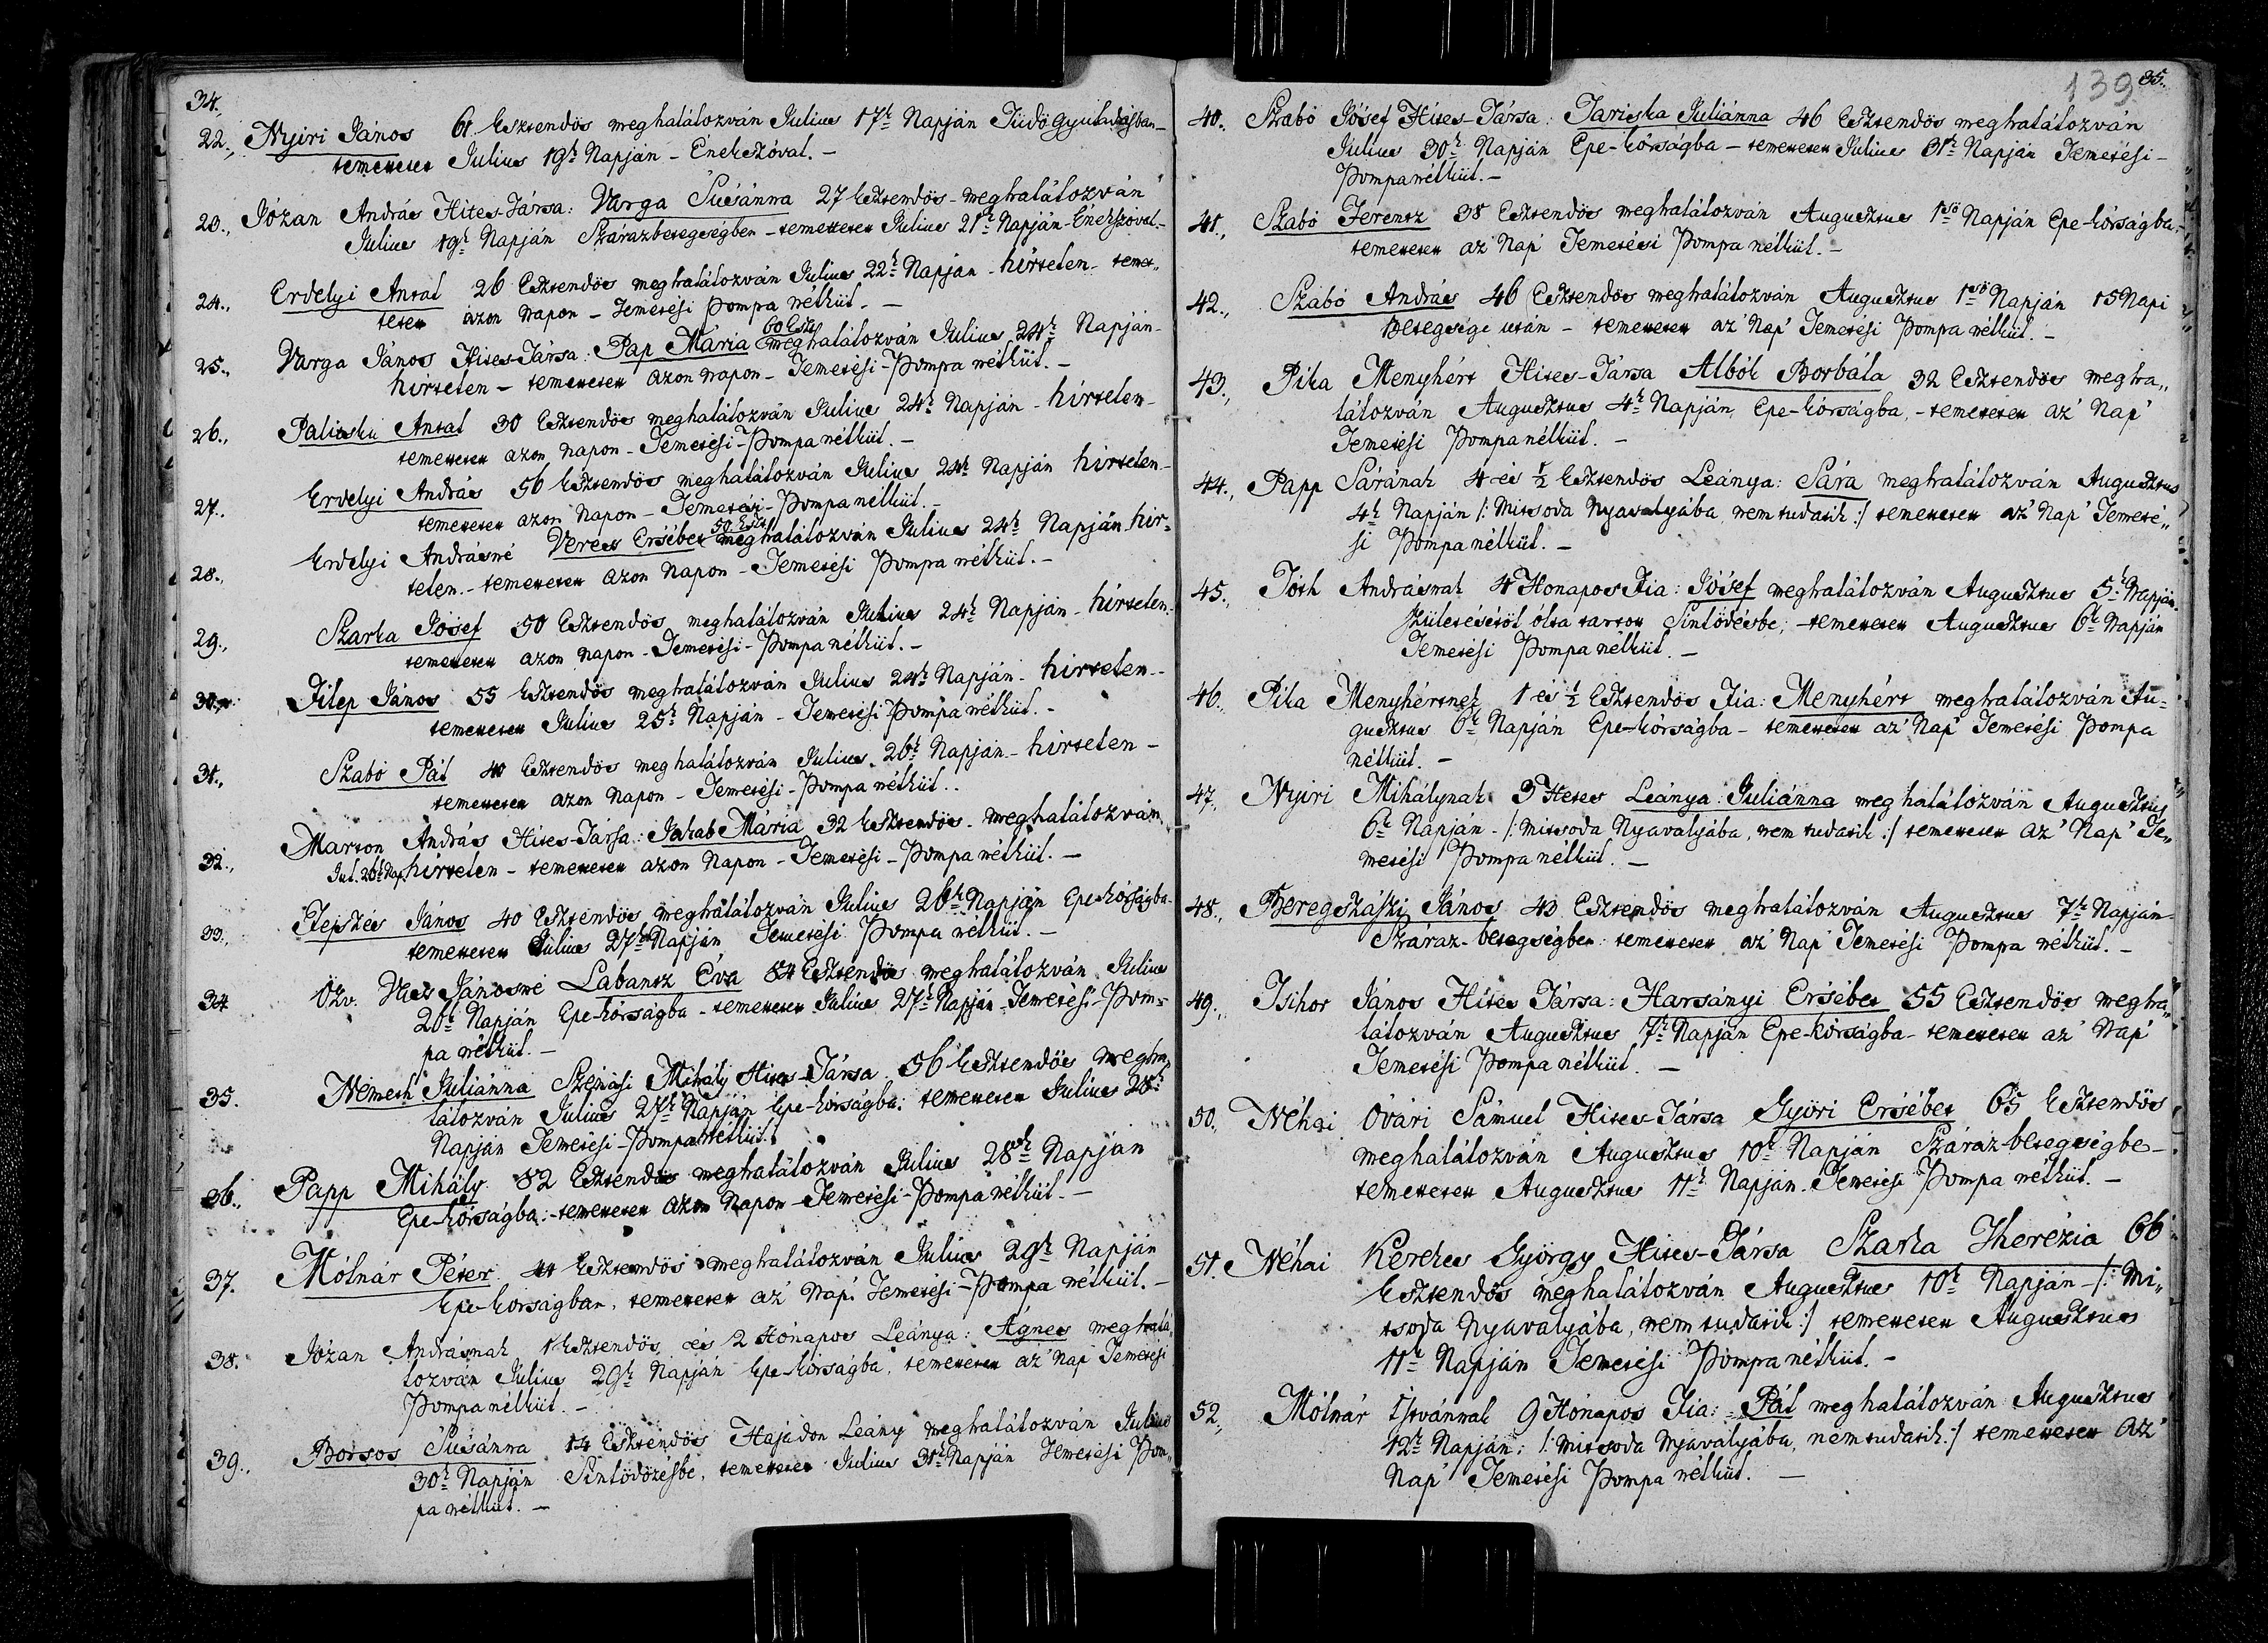 34.
22., Nyiri János 61 Esztendös meghalálozván Julius 17k Napján Tüdö Gyuladásban_
temetetet Julius 19k Napján - Énekszóval. -
23., Józan András Hites-Társa: Varga Susánna 27 Esztendös - meghalálozván
Julius 19k Napján Szárazbetegségben - temettetet Julius 21k Napján - Énekszóval -
24., Erdelyi Antal 26 Esztendös meghalálozván Julius 22k Napján - hirtelen - temet„
tetet azon napon - Temetési Pompa nélkül. -
25., Varga János Hites-Társa: Pap Mária 60 Eszt. meghalálozván Julius 24k Napján -
hirtelen - temettetet azon napon - Temetési - Pompa nélkül. -
26., Palinski Antal 30 Esztendös meghalálozván Julius 24k Napján - hirtelen -
temettetet azon napon - Temetési - Pompa nélkül. -
27. Erdelyi András 56 Esztendös meghalálozván Julius 24k Napján hirtelen -
temettetet azon Napon - Temetési - Pompa nélkül. -
28., Erdelyi Andrásné Veres Ersébet 50 Eszt. meghalálozván Julius 24k Napján hir=
telen. - temettetet azon Napon - Temetési Pompa nélkül. -
29., Szarka Jósef 50 Esztendös meghalálozván Julius 24k Napján - hirtelen.
temettetet azon napon - Temetési - Pompa nélkül. -
30. Filep János 55 Esztendös meghalálozván Julius 24k Napján - hirtelen -
temettetet Julius 25k Napján - Temetési Pompa nélkül. -
31., Szabó Pál 40 Esztendös meghalálozván Julius 26k Napján - hirtelen -
temettetet azon Napon - Temetési - Pompa nélkül..
32., Marton András Hites-Társa: Jakab Mária 32 Esztendös - meghalálozván
Jul. 26k Nap. hirtelen - temettetet azon Napon - Temetési - Pompa nélkül. -
33., János 40 Esztendös meghalálozván Julius 26k Napján Epekórságba -
temettetet Julius 27k Napján Temetési Pompa nélkül. -
34 Özv. Jánosné Labantz Éva 84 Esztendös meghalálozván Julius
26k Napján Epe-kórságba - temettetet Julius 27k Napján - Temetési - Pom=
pa nélkül. -
35. Németh Juliánna Szemási Mihály Hites-Társa 56 Esztendös megha
lálozván Julius 27k Napján Epe-kórságba: temettetet Julius 28k
Napján Temetési - Pompa nélkül.
36., Papp Mihály 52 Esztendös meghalálozván Julius 28k Napján
Epe-kórságba: - temettetet azon Napon - Temetési - Pompa nélkül. -
37. Mólnár Péter 44 Esztendös meghalálozván Julius 29k Napján
Epe-kórságban, temettetet az' Nap' Temetési - Pompa nélkül. -
38. Józan Andrásnak 1 Esztendös és 2 Hónapos Leánya: Ágnes meghalá„
lozván Julius 29k Napján Epe-kórságba, temettetet az' Nap' Temetési
Pompa nélkül. -
39., Borsos Susánna 14 Esztendös Hajadon Leány meghalálozván Julius
30k Napján Sinlödözésbe, temettetet Julius 31k Napján Temetési Pom„
pa nélkül. -
139 35.
40., Szabó Jósef Hites-Társa: Tariska Juliánna 46 Esztendös meghalálozván
Julius 30k Napján Epe-kórságba - temettetet Julius 31k Napján Temetési -
Pompa nélkül. -
41., Szabó Ferentz 38 Esztendös meghalálozván Augusztus 1sö Napján Epe-kórságba,
temettetet az Nap' Temetési Pompa nélkül. -
42., Szabó András 46 Esztendös meghalálozván Augusztus 1sö Napján 15 Napi
Betegsége után - temettetet az' Nap' Temetési Pompa nélkül. -
43., Pika Menyhért Hites-Társa Albók Borbála 32 Esztendös megha„
lálozván Augusztus 4k Napján, Epe-kórságba, - temettetet az' Nap'
Temetési Pompa nélkül. -
44., Papp Sárának 4 és 1/2 Esztendös Leánya: Sára meghalálozván Augusztus
4k Napján /: Mitsoda Nyavalyába, nem tudatik :/ temettetet az' Nap' Temeté„
si Pompa nélkül. -
45., Tóth Andrásnak 4 Honapos Fia: Jósef meghalálozván Augusztus 5k Napján
Születésétöl ólta tartott Sinlödésbe; - temettetet Augusztus 6k Napján
Temetési Pompa nélkül. -
46., Pika Menyhértnek 1 és 1/2 Esztendös Fia: Menyhért meghalálozván Au=
gusztus 6k Napján Epe-kórságba - temettetet az' Nap' Temetési Pompa
nélkül. -
47., Nyiri Mihálynak 3 Hetes Leánya: Juliánna meghalálozván Augusztus
6k Napján - /: Mitsoda Nyavalyába, nem tudatik :/ temettetet az' Nap' Te„
metési Pompa nélkül. -
48., Beregszászi János 43 Esztendös meghalálozván Augusztus 7k Napján -
Száraz-betegségben: temettetet az' Nap' Temetési Pompa nélkül. -
49., Tsihor János Hites Társa: Harsányi Ersébet 55 Esztendös megha„
lálozván Augusztus 7k Napján Epe-kórságba - temettetet az' Nap'
Temetési Pompa nélkül. -
50., Néhai Óvári Sámuel Hites-Társa Györi Ersébet 65 Esztendös
meghalálozván Augusztus 10k Napján Száraz-betegségbe -
temettetet Augusztus 11k Napján. Temetési Pompa nélkül. -
51. Néhai Kerekes György Hites-Társa Szarka Therézia 66
Esztendös meghalálozván Augusztus 10k Napján - /: Mi„
tsoda Nyavalyába, nem tudatik :/ temettetet Augusztus
11k Napján Temetési Pompa nélkül. -
52., Mólnár Istvánnak 9 Hónapos Fia: Pál meghalálozván Augusztus
12k Napján; /: Mitsoda Nyavalyába, nem tudatik :/ temettetet az'
Nap' Temetési Pompa nélkül. -